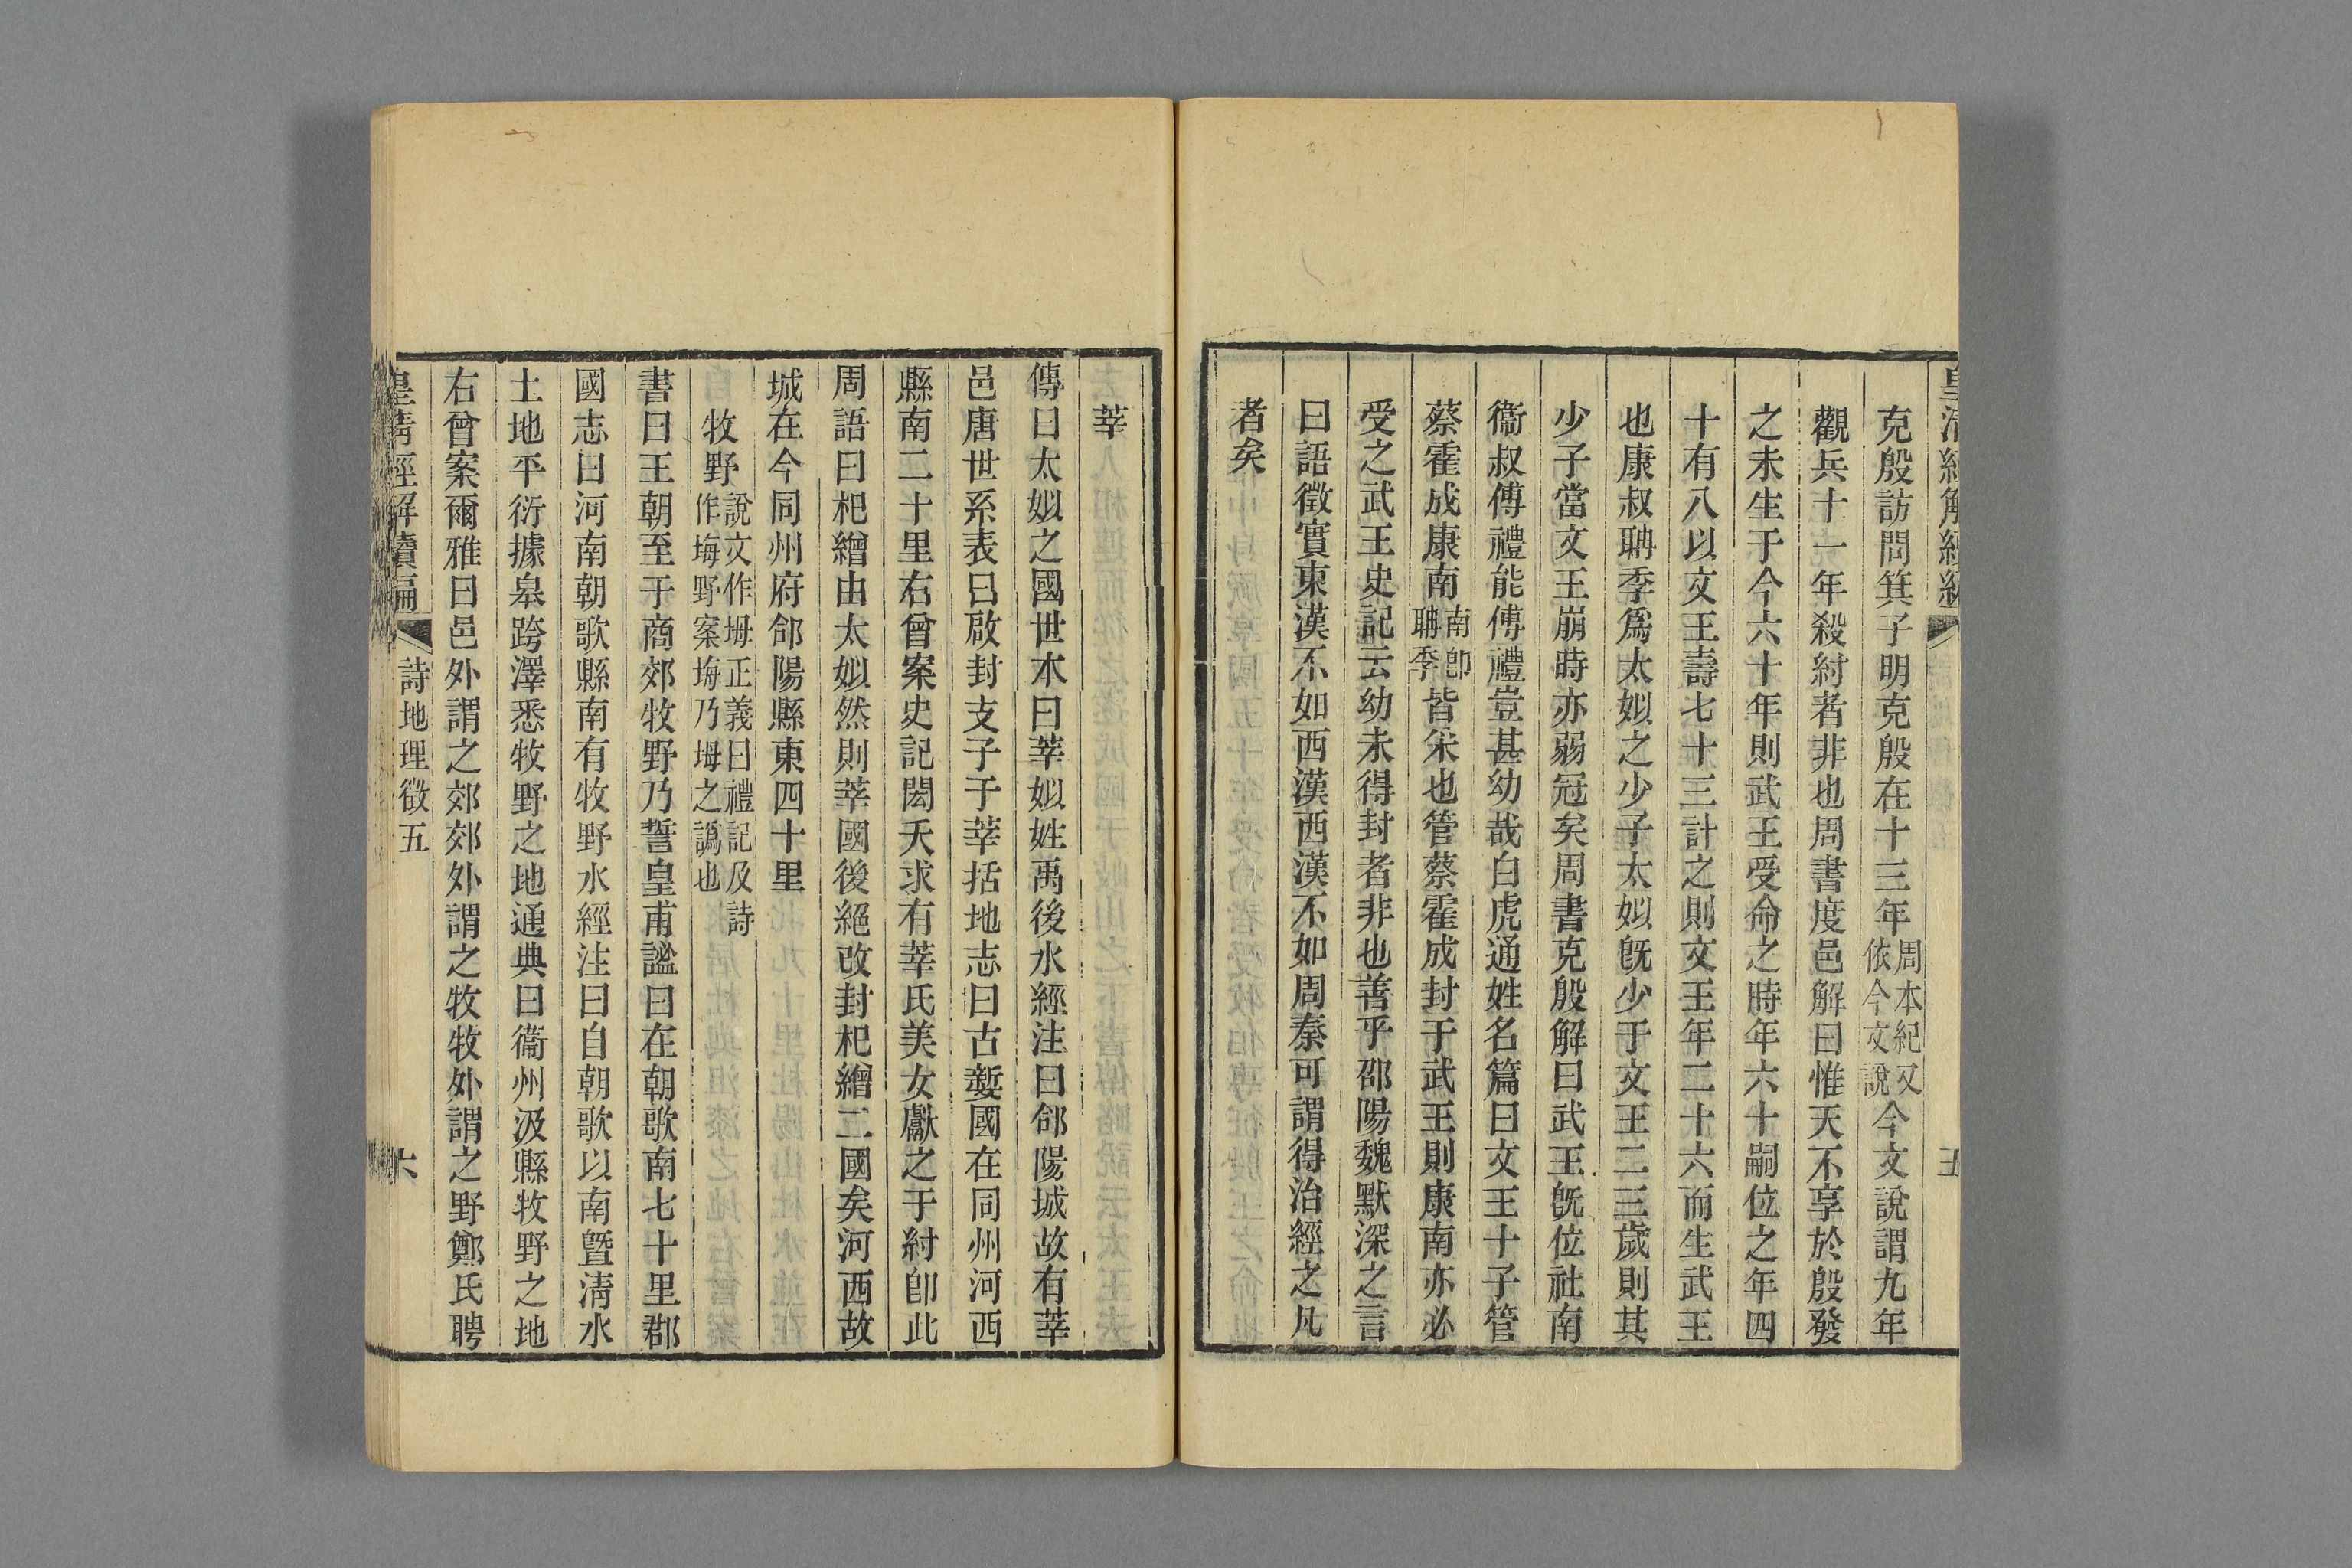 克殷訪問箕子明克殷在十三年周本紀又依今文說今文說謂九年
觀兵十一年殺紂者非也周書度邑解曰惟天不享於殷發
之未生于今六十年則武王受命之時年六十嗣位之年四
十有八以文王壽七十三計之則文王年二十六而生武王
也康叔聃季爲太姒之少子太姒旣少于文王二三歲則其
少子當文王崩時亦弱冠矣周書克殷解曰武王旣位社南
衞叔傅禮能傅禮豈甚幼哉白虎通姓名篇曰文王十子管
蔡霍成康南南卽聃季皆采也管蔡霍成封于武王則康南亦必
受之武王史記云幼未得封者非也善乎邵陽魏默深之言
曰語徵實東漢不如西漢西漢不如周秦可謂得治經之凡
者矣
莘
傳曰太姒之國世本曰莘姒姓禹後水經注曰郃陽城故有莘
邑唐世系表曰啟封支子于莘括地志曰古㜪國在同州河西
縣南二十里右曾案史記閎夭求有莘氏美女獻之于紂卽此
周語曰杞繒由太姒然則莘國後絕改封杞繒二國矣河西故
城在今同州府郃陽縣東四十里
牧野說文作坶正義曰禮記及詩作坶野案坶乃坶之譌也
書曰王朝至于商郊牧野乃誓皇甫謐曰在朝歌南七十里郡
國志曰河南朝歌縣南有牧野水經注曰自朝歌以南曁淸水
土地平衍據皋跨澤悉牧野之地通典曰衞州汲縣牧野之地
右曾案爾雅曰邑外謂之郊郊外謂之牧牧外謂之野鄭氏聘
皇淸經解續編 詩地理徵五 六